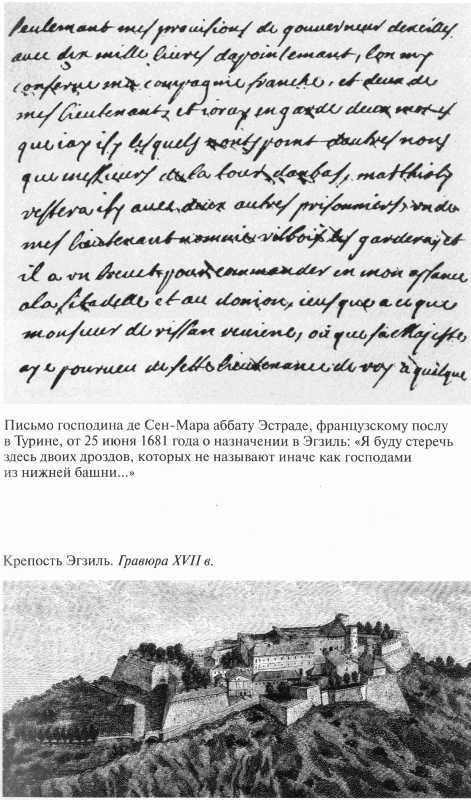 seulemant mes provisions de gouverneur dexilles
avec dix mille livres dapointemant, lon my
conserve ma compagnie franche, et deux de
mes lieutenants, et joray en garde deux merles
que jay isy lesquels nonts point dautres nons
que messieurs de la tour danbas, matthioly
restera isy avec deux autres prisonniers, un de
mes lieutenant nommé villebois les garderá, et
il a un brevet pour commander en mon assance
a la sitadelle et au donjon, jeusque a ce que
monsieur de rissan revienne, où que sa Majesté
aye pourveu de sette lieutenance de roy à quelque
Письмо господина де Сен-Мара аббату Эстраде, французскому послу
в Турине, от 25 июня 1681 года о назначении в Эгзиль: «Я буду стеречь
здесь двоих дроздов, которых не называют иначе как господами
из нижней башни...»
Крепость Эгзиль. Гравюра XVII в.